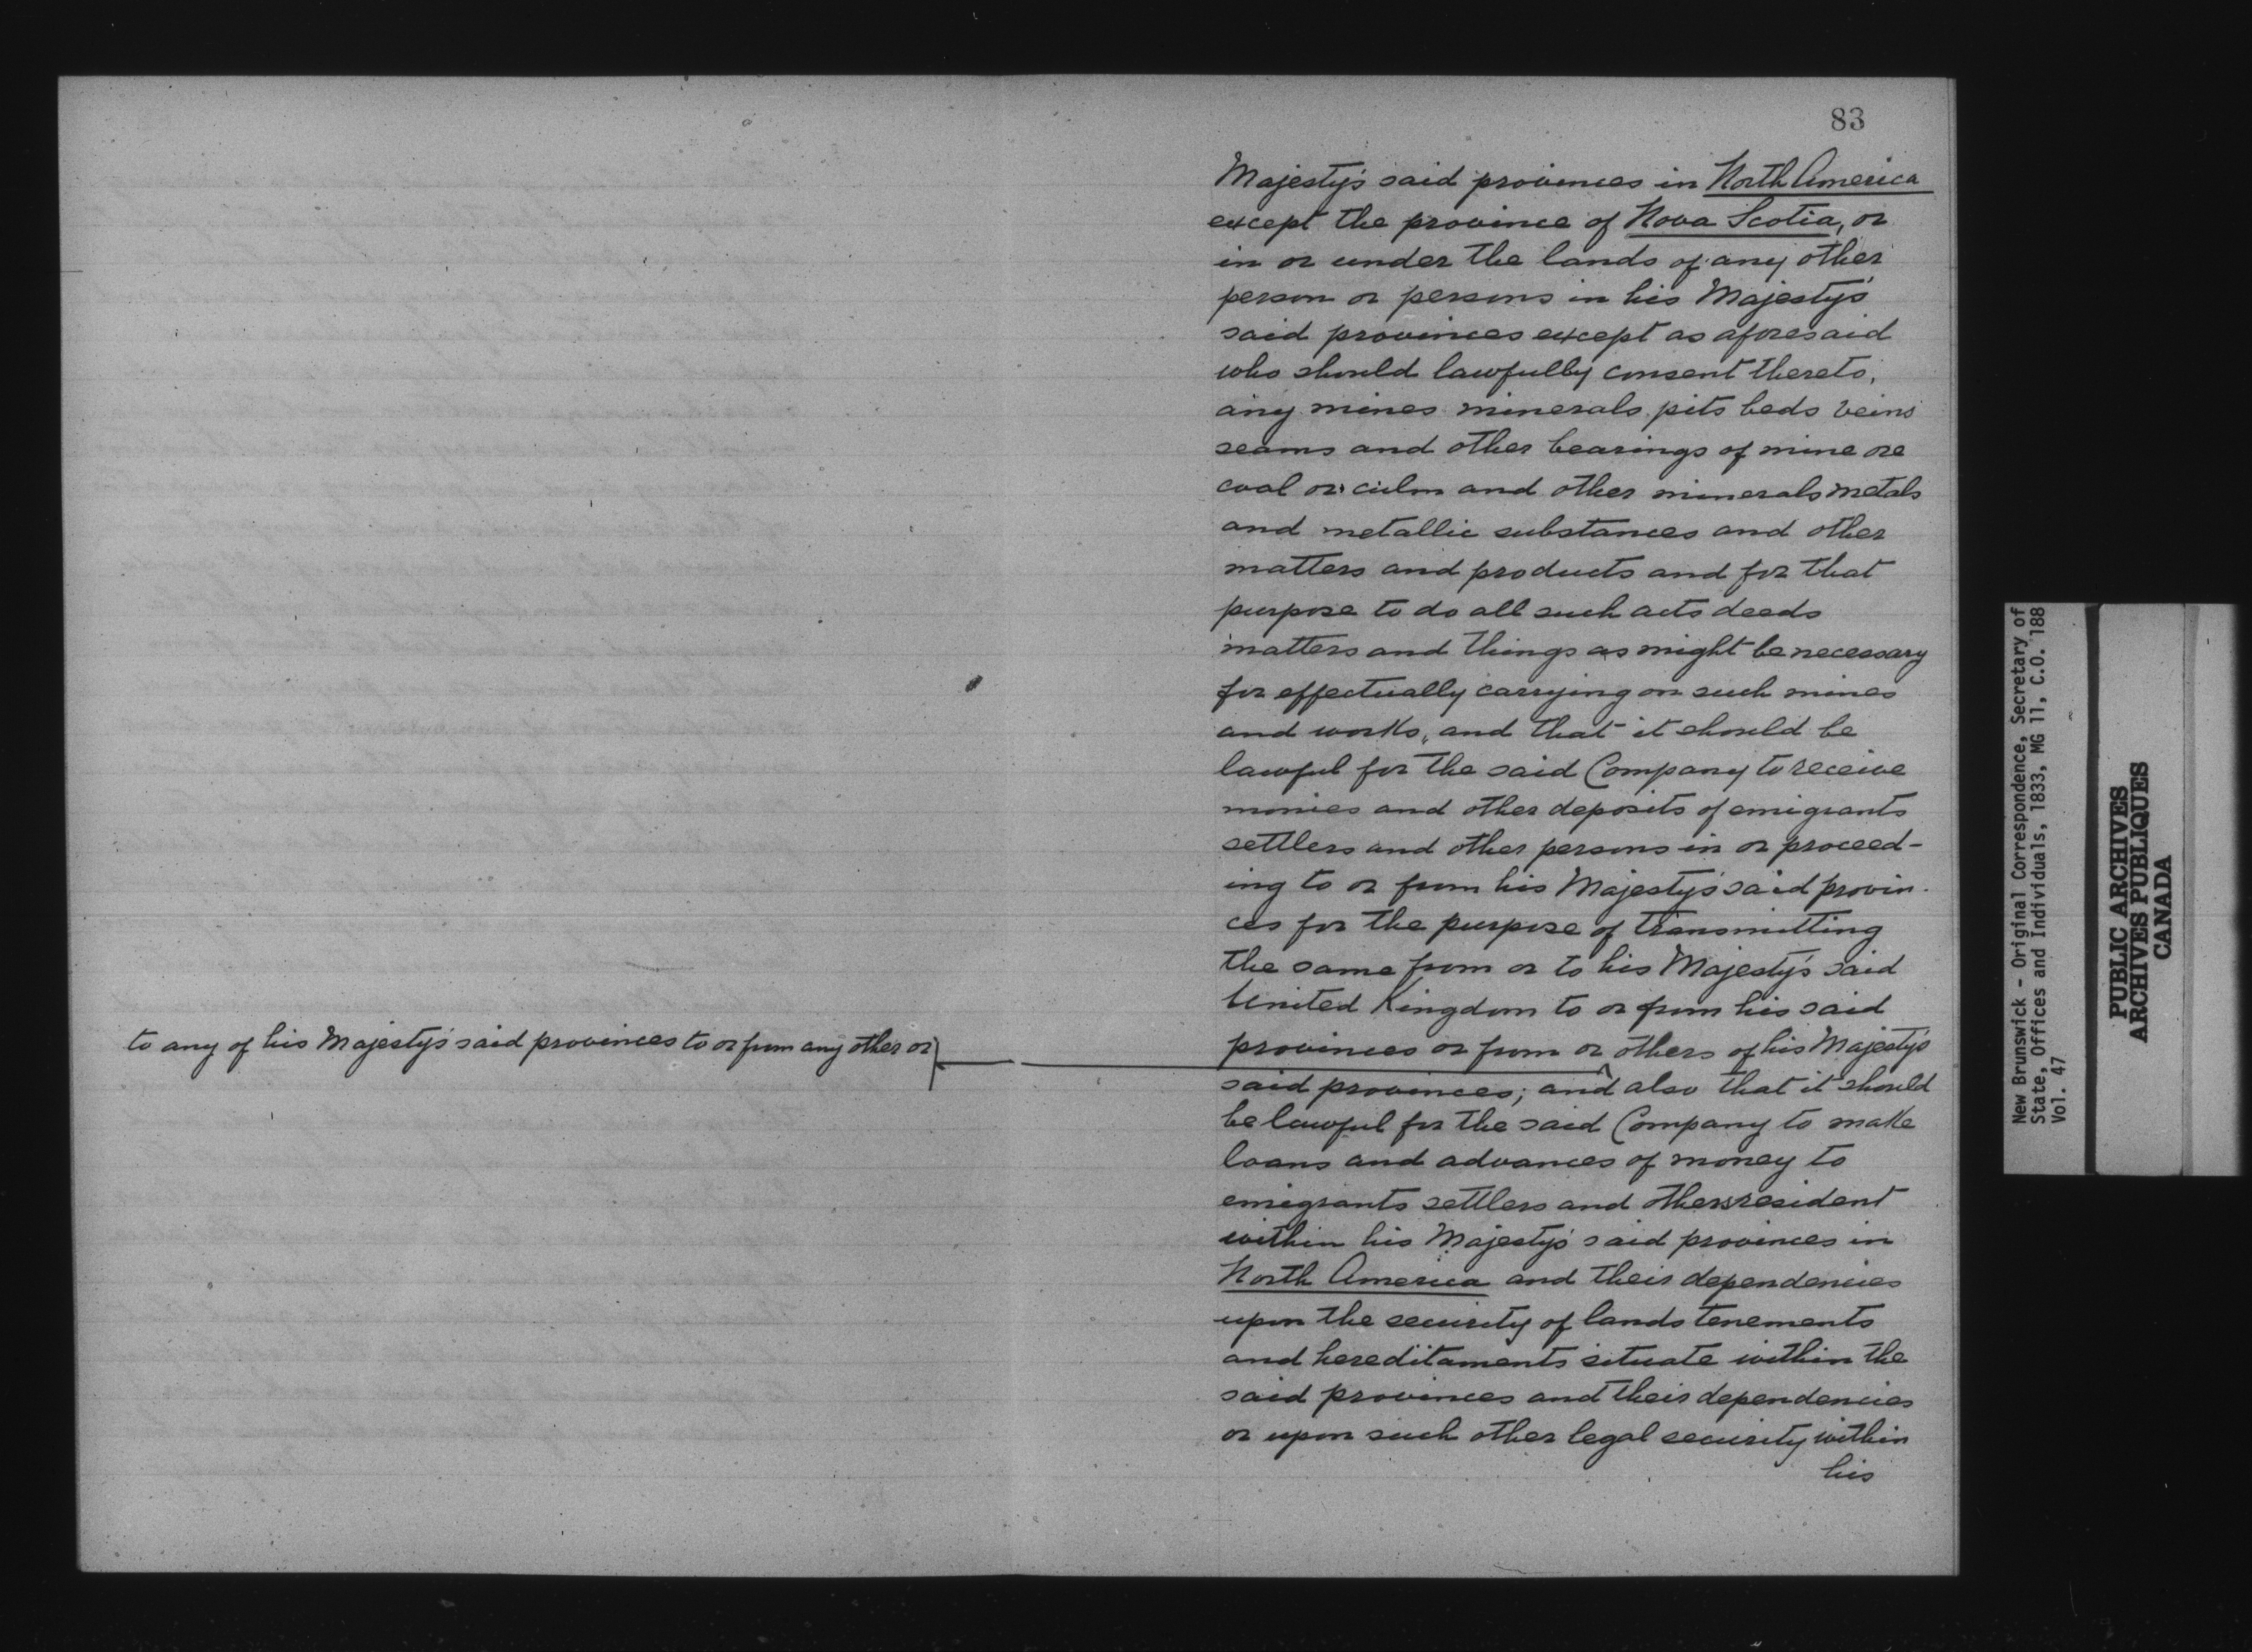 83
Majesty's said provinces in North America
except the province of Nova Scotia, or
in or under the lands of any other
person or persons in his Majesty's
said provinces except as aforesaid
who should lawfully consent thereto,
any mines minerals pits beds veins
seams and other bearings of mine ore
coal or culm and other minerals metals
and metallic substances and other
matters and products and for that
purpose to do all such acts deeds
matters and things as might be necessary
for effectually carrying on such mines
and works, and that it should be
lawful for the said Company to receive
monies and other deposits of emigrants
settlers and other persons in or proceed-
ing to or from his Majesty's said provin-
ces for the purpose of transmitting
the same from or to his Majesty's said
United Kingdom to or from his said
provinces or from or others of his Majesty's
to any of his Majesty's said provinces to or from any other or
said provinces; and also that it should
be lawful for the said Company to make
loans and advances of money to
emigrants settlers and others resident
within his Majesty's said provinces in
North America and their dependencies
upon the security of lands tenements
and hereditaments situate within the
said provinces and their dependencies
or upon such other legal security within
his
New Brunswick - Original Correspondence, Secretary of
State, Offices and Individuals, 1833, MG 11, C.O. 188
Vol. 47
PUBLIC ARCHIVES
ARCHIVES PUBLIQUES
CANADA